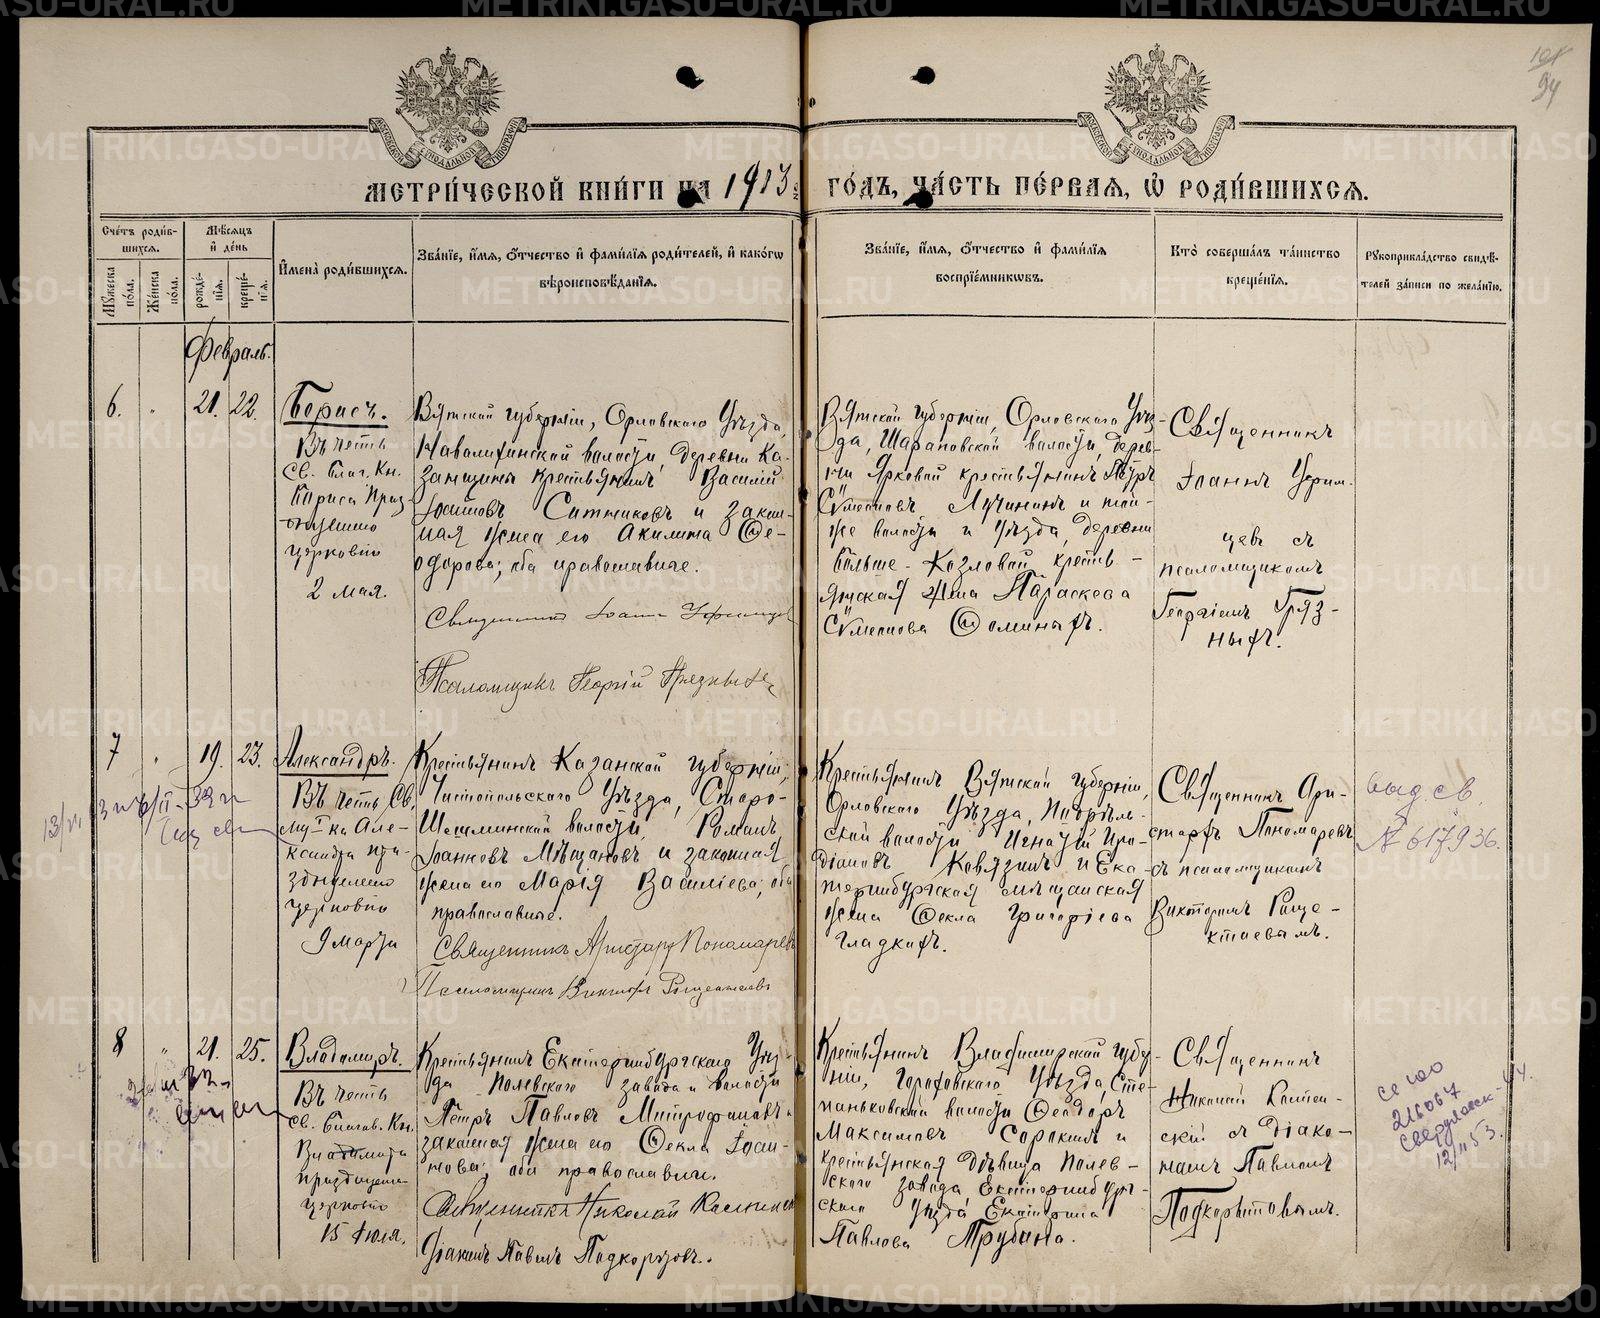 METRIKI.GASO-URAL.RU
МЕТРИ́ЧЕСКОЙ КНИ́ГИ НА 1913 ГО́ДЪ, ЧА́СТЬ ПЕ́РВАѦ, Ѿ РОДИ́ВШИХСѦ.
94
Сче́тъ роди́в-
шихсѧ.
Мꙋ́жеска по́ла.
Же́нска по́ла.
Мѣ́сѧцъ
и҆ де́нь
рожде́-
нїѧ.
креще́-
нїѧ.
И҆мена̀ роди́вшихсѧ.
Зва́нїе, и҆́мѧ, ѻ҆́тчество и҆ фами́лїѧ роди́телей, и҆ како́гѡ
вѣроисповѣ́данїѧ.
Зва́нїе, и҆́мѧ, ѻ҆́тчество и҆ фами́лїѧ
воспрїе́мникѡвъ.
Кто̀ соверша́лъ та́инство
креще́нїѧ.
Рꙋкоприкла́дство свидѣ́-
телей за́писи по жела́нїю.
Февраль.
6. 21. 22.
Борисъ.
Въ честь
Св. Благ. Кн.
Бориса праз-
церковію
2 мая.
Вятской губерніи, Орловскаго Уѣзда,
волости, деревни Ка-
занщины крестьянинъ Василій
Іоанновъ Ситниковъ и закон-
ная жена его Акилина Ѳе-
одорова; оба православные.
Священникъ Іоаннъ Уфимцев
Псаломщикъ Георгій Грязныхъ
Вятской губерніи, Орловскаго Уѣз-
да, Шарановской волости, дерев-
ни Ярковой крестьянинъ Петръ
Сѵмеоновъ Лучининъ и той-
же волости и Уѣзда, деревни
Больше-Козловой кресть-
янская жена Параскева
Сѵмеонова Ѳоминыхъ.
Священникъ
Іоаннъ Уфим-
цевъ съ
псаломщикомъ
Георгіемъ Гряз-
ныхъ.
7 19. 23.
Александръ.
Въ честь Св.
му-ка Але-
ксандра пра-
церковію
9 марта
Крестьянинъ Казанской губерніи,
Чистопольскаго Уѣзда, Старо-
Шешминской волости, Романъ
Іоанновъ Мѣщановъ и законная
жена его Марія Васильева; оба
православные.
Священникъ Аристархъ Пономаревъ
Псаломщикъ Викторъ
Крестьянинъ Вятской губерніи,
Орловскаго Уѣзда,
ской волости Игнатій Про-
діоновъ Ковязинъ и Ека-
теринбургская мѣщанская
жена Ѳекла Григоріева
Гладкихъ.
Священникъ Ари-
стархъ Пономаревъ
съ псаломщикомъ
Викторомъ
выд. св.
№ 617936.
8 21. 25.
Владиміръ.
Въ честь
Св. Благов. Кн.
Владиміра
церковію
15 Іюля.
Крестьянинъ Екатеринбургскаго Уѣз-
да Полевскаго завода и волости
Петръ Павловъ Митрофановъ и
законная жена его Ѳекла Іоан-
нова; оба православные.
Священникъ Николай
Діаконъ Павелъ Подкорытовъ.
Крестьянинъ Владимірской губер-
ніи, Гороховскаго Уѣзда, Сте-
паньковской волости Ѳеодоръ
Максимовъ Сорокинъ и
крестьянская дѣвица Полев-
скаго завода, Екатеринбург-
скаго Уѣзда Екатерина
Павлова Трубина.
Священникъ
Николай
съ діако-
номъ Павломъ
Подкорытовымъ.
216067
12/II 53.